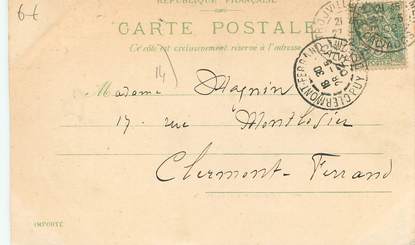 6€
RÉPUBLIQUE FRANÇAISE
CARTE POSTALE
Ce côté est exclusivement réservé à l'adresse
14
Madame Magnin
17. rue Montlosier
Clermont-Ferrand
IMPORTÉ
CLERMONT-FERRAND PUY